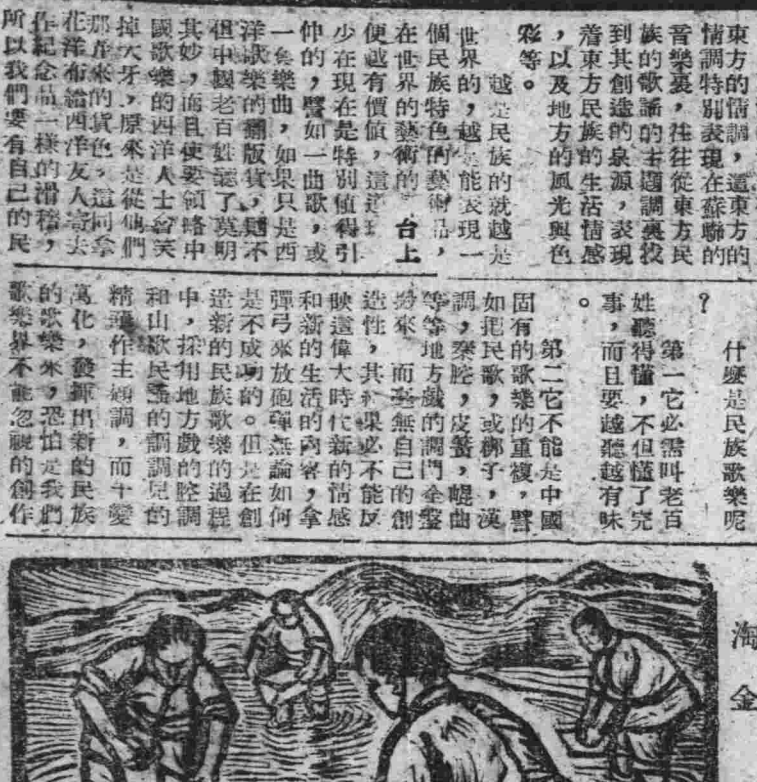 東方的情調，這東方的
情調特別表現在蘇聯的
音樂裏，往往從東方民
族的歌謠的主題調裏找
到其創造的泉源，表現
着東方民族的生活情感
，以及地方的風光與色
彩等。
越是民族的就越是
世界的，越是能表現一
個民族特色的藝術品，
在世界的藝術的 台上
便越有價值，這
少在現在是特別值得引
伸的，譬如一曲歌，或
一隻樂曲，如果只是西
洋歌樂的翻版貨，則不
但中國老百姓聽了莫明
其妙，而且使要領略中
國歌樂的西洋人士會笑
掉大牙，原來是從他們
那弄來的貨色，這同拿
花洋布給西洋友人寄去
作紀念品一樣的滑稽，
所以我們要有自己的民
什麼是民族歌樂呢
？
第一它必需叫老百
姓聽得懂，不但懂了完
事，而且要越聽越有味
。
第二它不能是中國
固有的歌樂的重複，譬
如把民歌，或梆子，漢
調，秦腔，皮簧，崐曲
等等地方戲的調門全盤
搬來 而毫無自己的創
造性，其結果必不能反
映這偉大時代新的情感
和新的生活的內容，拿
彈弓來放砲彈無論如何
是不成功的。但是在創
造新的民族歌樂的過程
中，採用地方戲的腔調
和山歌民謠的調調兒的
精華作主題調，而千變
萬化，發揮出新的民族
的歌樂來，恐怕是我們
歌樂界不能忽視的創作
淘金